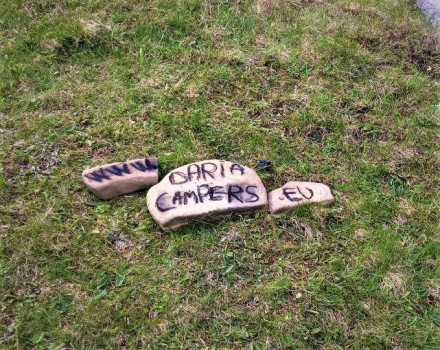 WWW
DARIA
CAMPERS
.EU